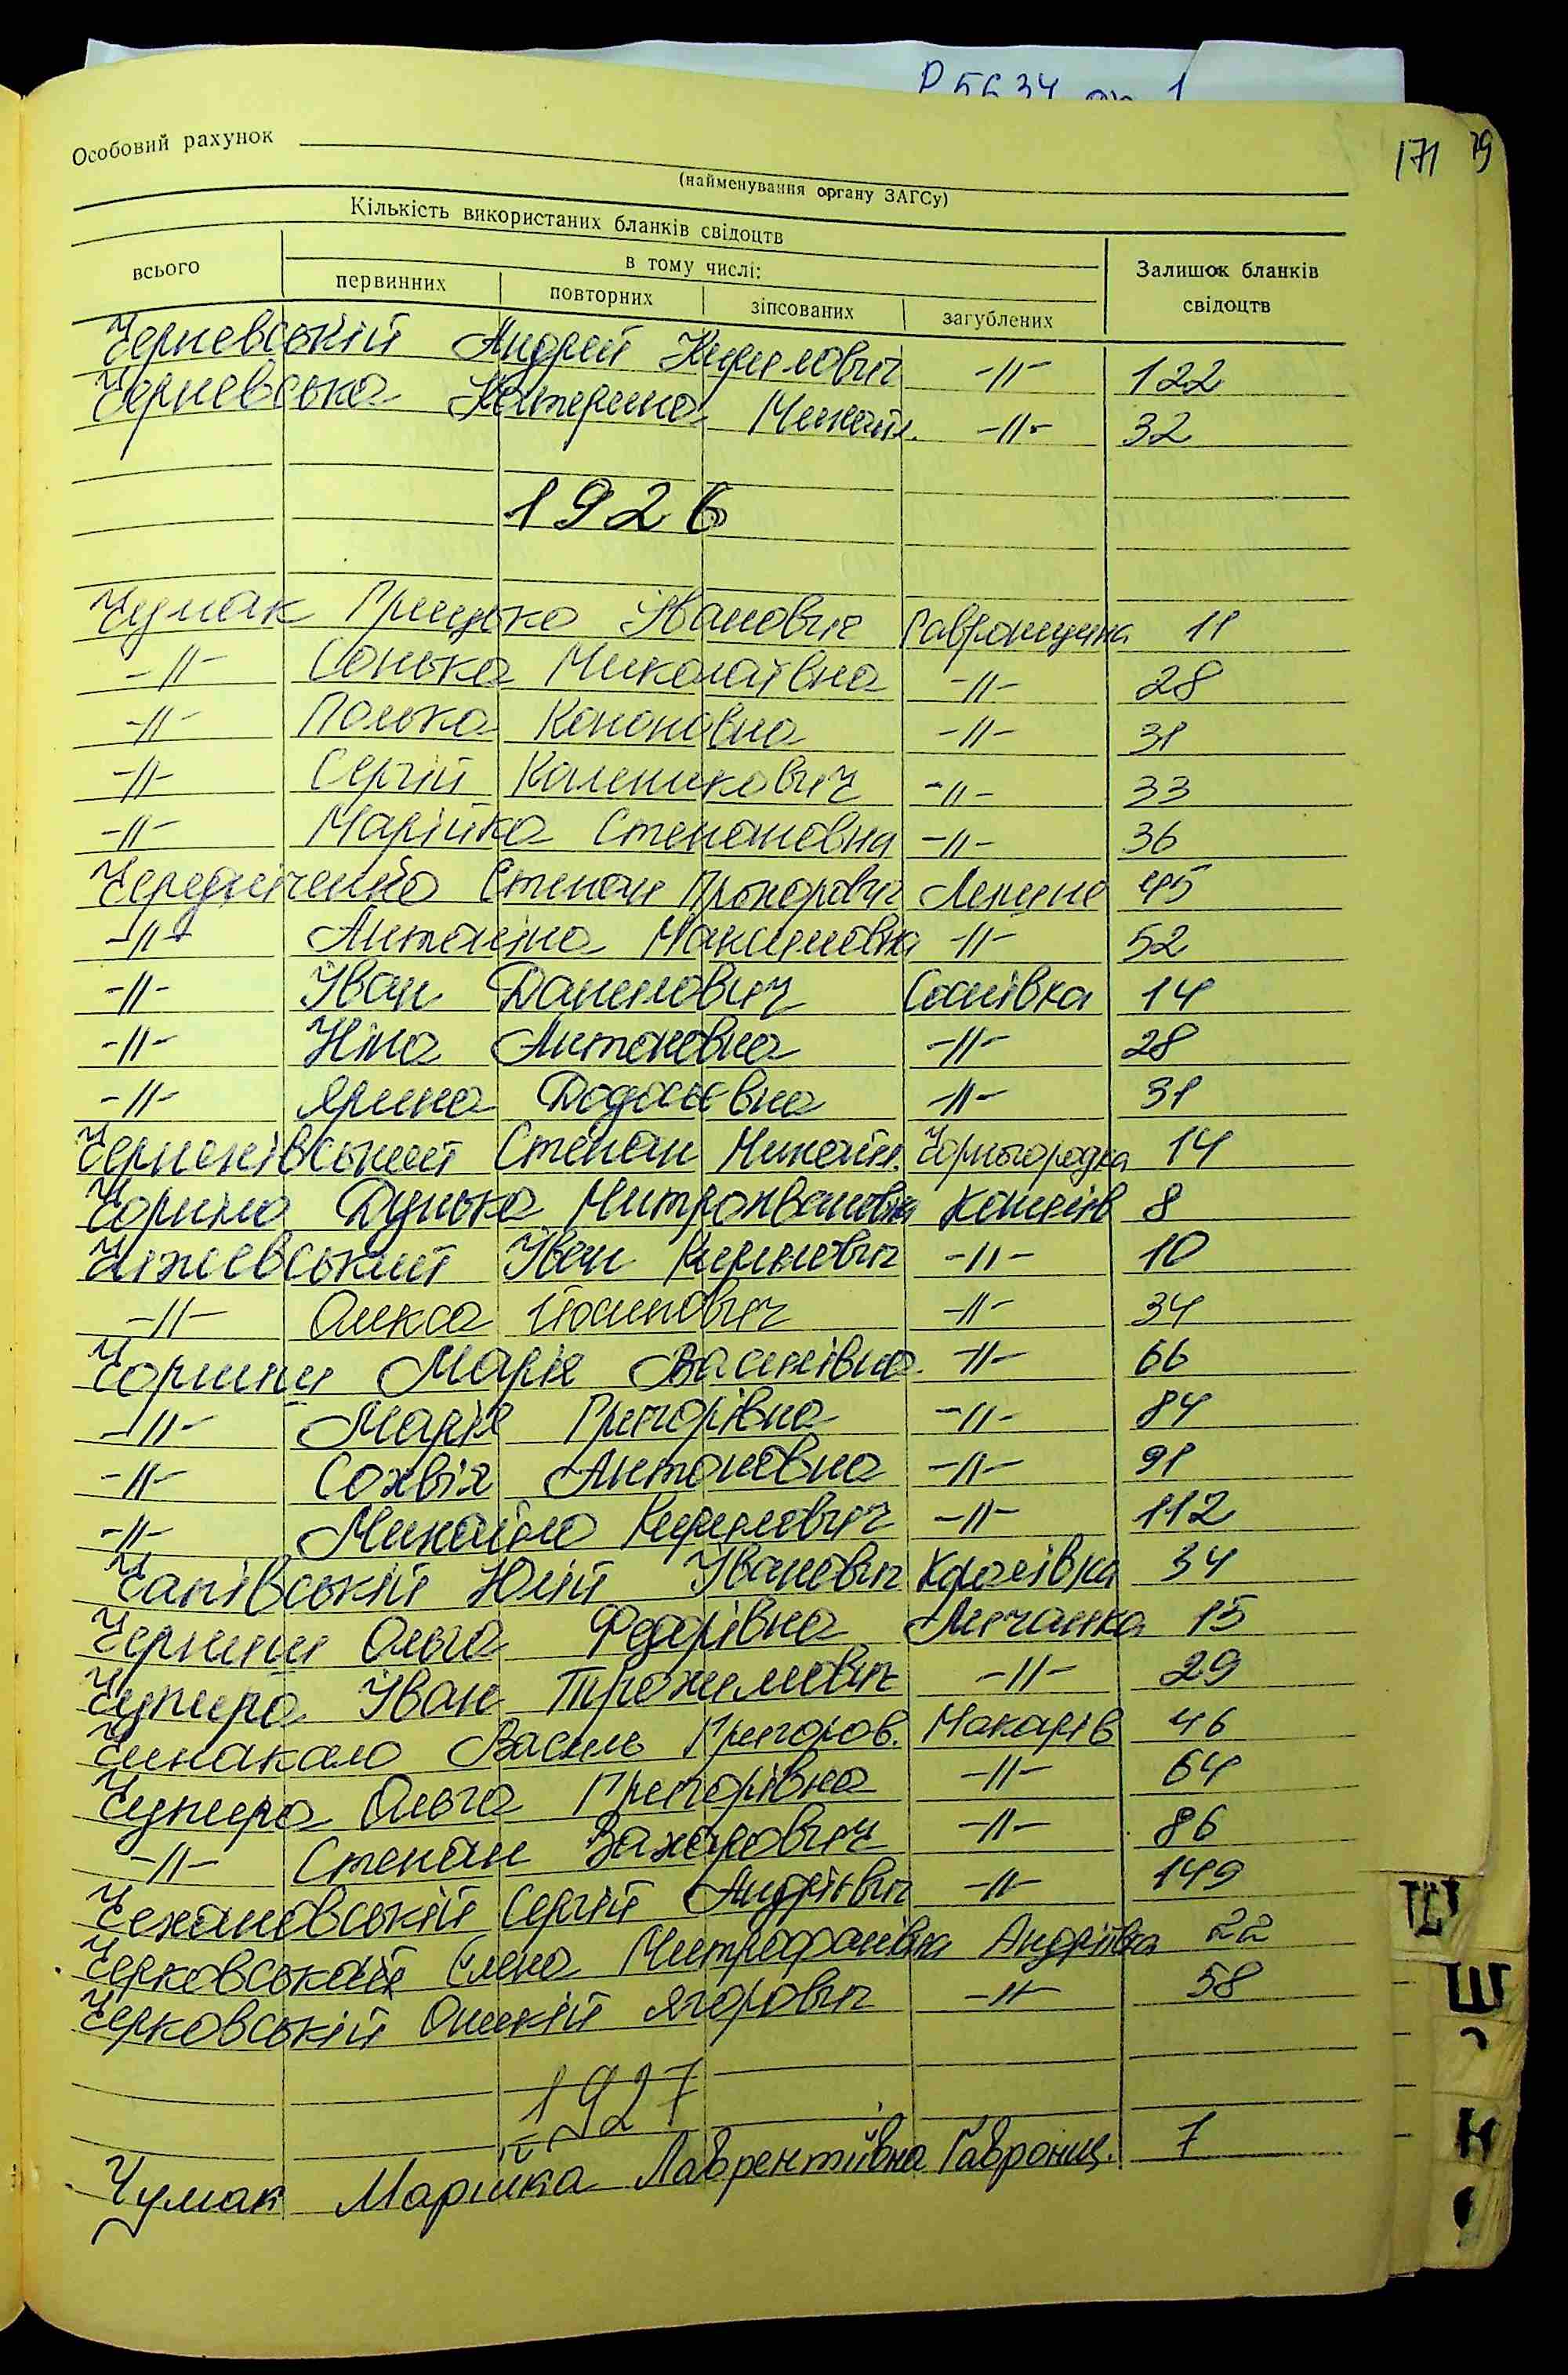 Р5634 оп 1
171 79
Особовий рахунок
(найменування органу ЗАГСу)
Кількість використаних бланків свідоцтв
всього
в тому числі:
первинних повторних зіпсованих загублених
Залишок бланків свідоцтв
Черневській Андрей Кирилович -//- 122
Черневська Катерина Михайл. -//- 32
1926
Чумак Грицько Іванович Гавронщина 11
-//- Сонька Миколаївна -//- 28
-//- Полька Кононовна -//- 31
-//- Сергій Каленикович -//- 33
-//- Марійка Степановна -//- 36
Чередніченко Степан Прокорович Леніне 45
-//- Антоніна Максимовна -//- 52
-//- Іван Данилович Соснівка 14
-//- Ніна Антоновна -//- 28
-//- Ярина Додосієвна -//- 31
Чернехівський Степан Михайл. Чорногородка 14
Чорнiй Дунька Митрохвановна Копиев 8
Чіжевський Іван Кирилович -//- 10
-//- Олекса Йосипович -//- 34
Чорниш Марія Василівна -//- 66
-//- Марія Григорівна -//- 84
-//- Сохвія Антоновна -//- 91
-//- Михайло Кирилович -//- 112
Чапівській Юлій Іванович Королівка 34
Черниш Ольга Федорівна Личанка 15
Чуприра Іван Трохимович -//- 29
Чинакало Василь Григоров. Макарів 46
Чуприра Ольга Григорівна -//- 64
-//- Степан Захарович -//- 86
Чехановській Сергій Андрієвич -//- 149
Черковськая Єлена Митрофанівна Андріївка 22
Черковській Олексій Ягорович -//- 58
1927
Чумак Марійка Лаврентіївна Гавронщ. 7
Ш
Н